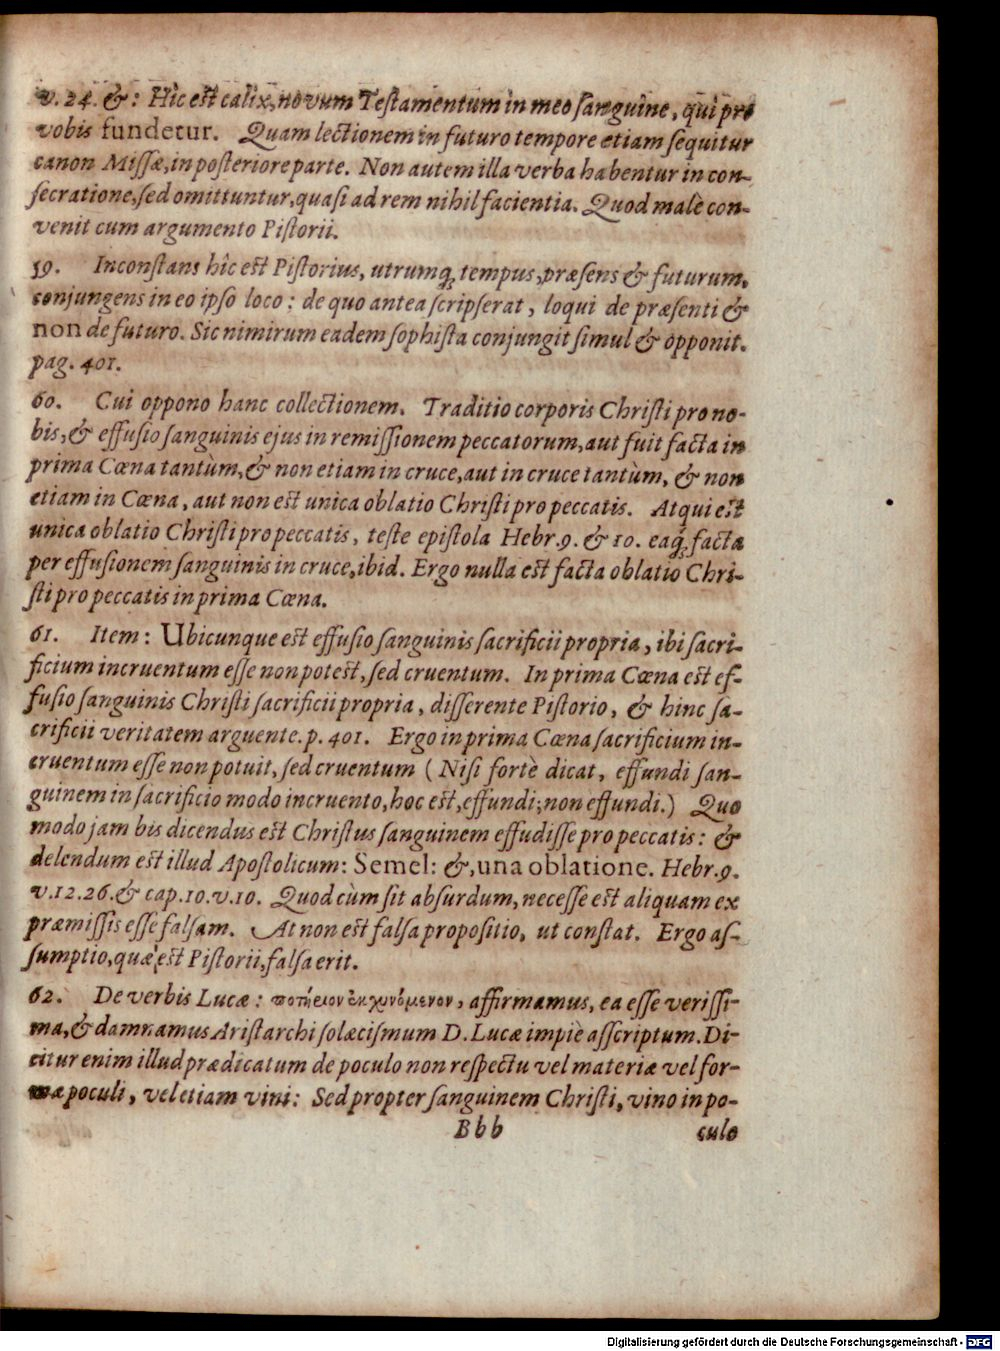 v. 24. &: Hîc est calix, novum Testamentum in meo sanguine, qui pro
vobis fundetur. Quam lectionem in futuro tempore etiam sequitur
canon Missæ, in posteriore parte. Non autem illa verba habentur in con-
secratione, sed omittuntur, quasi ad rem nihil facientia. Quod male con-
venit cum argumento Pistorii.
59. Inconstans hîc est Pistorius, utrumq́; tempus, præsens & futurum,
conjungens in eo ipso loco: de quo antea scripserat, loqui de præsenti &
non de futuro. Sic nimirum eadem sophista conjungit simul & opponit.
pag. 401.
60. Cui oppono hanc collectionem. Traditio corporis Christi pro no-
bis, & effusio sanguinis ejus in remissionem peccatorum, aut fuit facta in
prima Cœna tantùm, & non etiam in cruce, aut in cruce tantùm, & non
etiam in Cœna, aut non est unica oblatio Christi pro peccatis. Atqui est
unica oblatio Christi pro peccatis, teste epistola Hebr. 9. & 10. eaq́; facta
per effusionem sanguinis in cruce, ibid. Ergo nulla est facta oblatio Chri-
sti pro peccatis in prima Cœna.
61. Item: Ubicunque est effusio sanguinis sacrificii propria, ibi sacri-
ficium incruentum esse non potest, sed cruentum. In prima Cœna est ef-
fusio sanguinis Christi sacrificii propria, disserente Pistorio, & hinc sa-
crificii veritatem arguente. p. 401. Ergo in prima Cœna sacrificium in-
cruentum esse non potuit, sed cruentum (Nisi fortè dicat, effundi san-
guinem in sacrificio modo incruento, hoc est, effundi, non effundi.) Quo
modo jam bis dicendus est Christus sanguinem effudisse pro peccatis: &
delendum est illud Apostolicum: Semel: &, una oblatione. Hebr. 9.
v. 12. 26. & cap. 10. v. 10. Quod cùm sit absurdum, necesse est aliquam ex
præmissis esse falsam. At non est falsa propositio, ut constat. Ergo as-
sumptio, quæ est Pistorii, falsa erit.
62. De verbis Lucæ: ποτήριον ἐκχυνόμενον, affirmamus, ea esse verissi-
ma, & damnamus Aristarchi solœcismum D. Lucæ impiè asscriptum. Di-
citur enim illud prædicatum de poculo non respectu vel materiæ vel for-
mæ poculi, vel etiam vini: Sed propter sanguinem Christi, vino in po-
Bbb culo
Digitalisierung gefördert durch die Deutsche Forschungsgemeinschaft - DFG